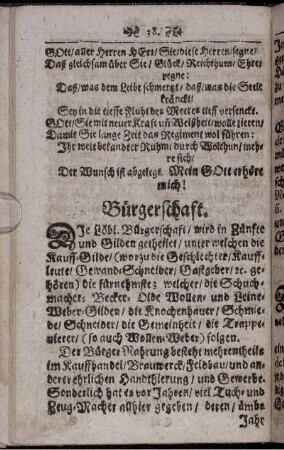 38.
GOtt/ aller Herren HErr/ Sie/ diese Herren/ segne/
Daß gleichsam über Sie/ Glück/ Reichthum/ Ehre/
regne:
Daß/ was dem Leibe schmertzt/ daß/ was die Seele
kränckt/
Sey in die tieffe Fluht des Meeres tieff versenckt.
GOtt/ Sie mit neuer Krafft uñ Weißheit/ wolle zieren/
Damit Sie lange Zeit das Regiment wol führen:
Ihr weit bekandter Ruhm/ durch Wolthun/ meh-
re sich/
Der Wunsch ist abgelegt. Mein GOtt erhöre
mich!
Bürgerschaft.
DIe Löbl. Bürgerschaft/ wird in Zünfte
und Gilden getheilet/ unter welchen die
Kauff-Gilde/ (worzu die Geschlechter/ Kauff-
leute/ Gewand-Schneider/ Gastgeber/ rc. ge-
hören) die fürnehmste; welcher/ die Schuch-
macher, Becker, Olde Wollen- und Leine-
Weber-Gilden/ die Knochenhauer/ Schmie-
de/ Schneider/ die Gemeinheit/ die Trappe-
nierer/ (so auch Wollen-Weber) folgen.
Der Bürger Nahrung besteht mehrentheils
im Kauffhandel/ Brauwerck/ Feldbau/ und an-
derer ehrlichen Handthierung/ und Gewerbe.
Sonderlich hat es vor Jahren/ viel Tuch- und
Zeug-Macher allhier gegeben/ deren/ ümbs
Jahr